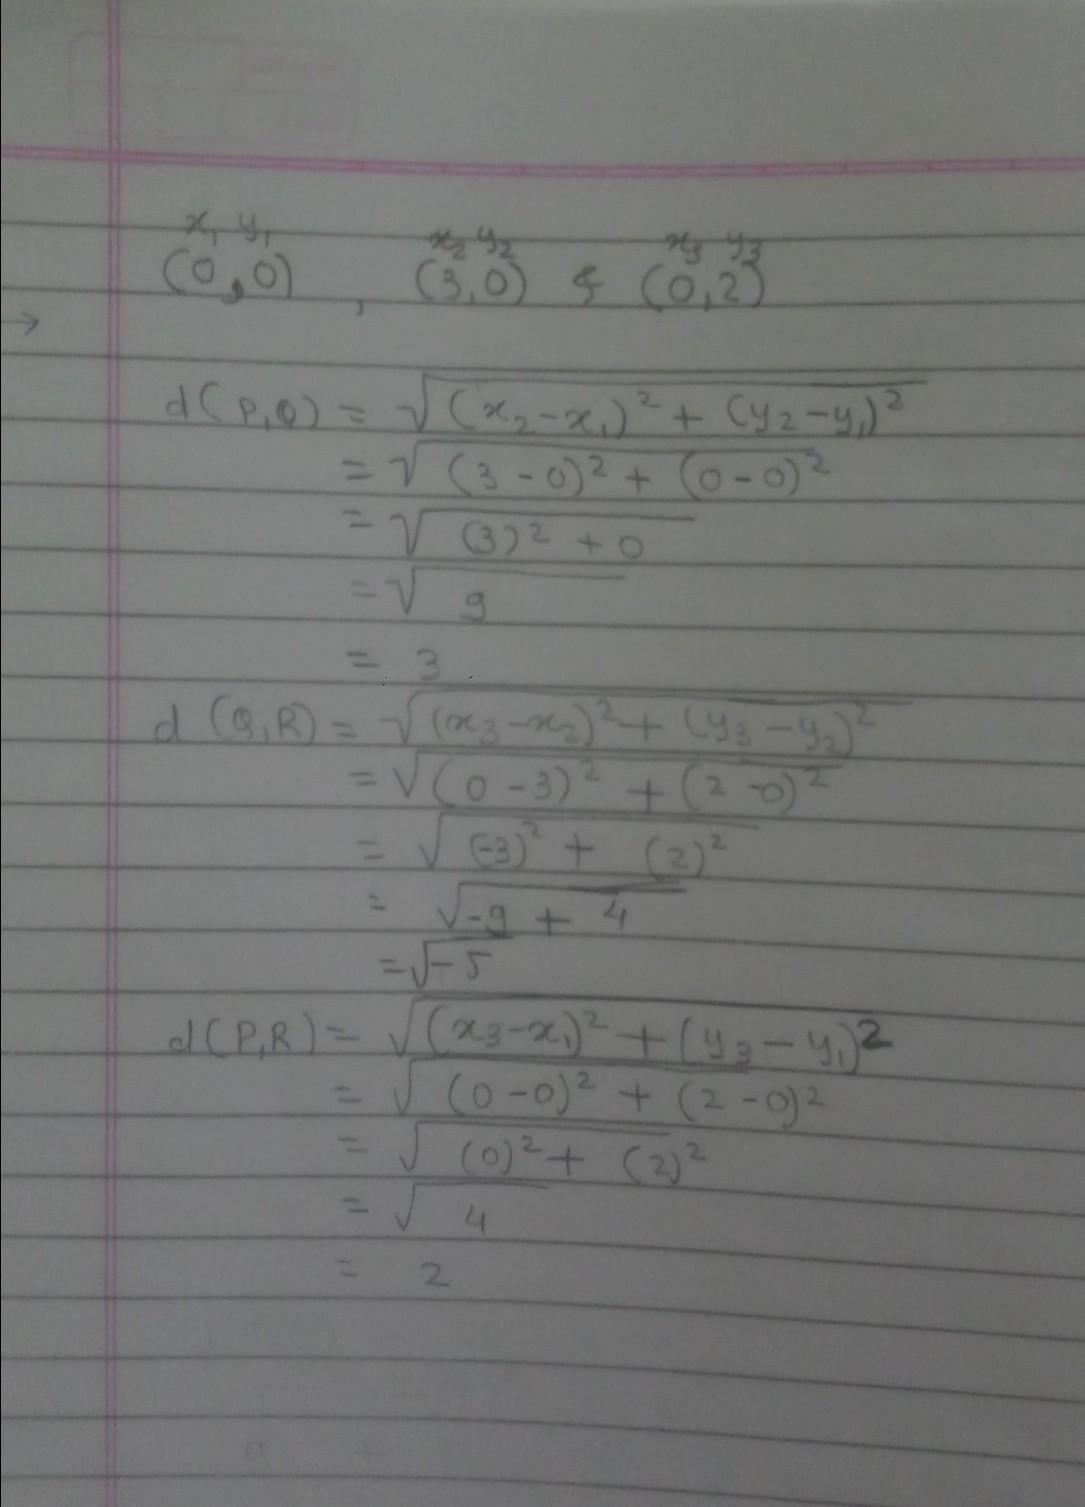 x₁ y₁ x₂ y₂ x₃ y₃
(0,0) , (3,0) & (0,2)
→
d(P,Q) = √(x₂-x₁)² + (y₂-y₁)²
= √(3-0)² + (0-0)²
= √(3)² + 0
= √9
= 3
d (Q,R) = √(x₃-x₂)² + (y₃-y₂)²
= √(0-3)² + (2-0)²
= √(-3)² + (2)²
= √-9 + 4
= √-5
d(P,R) = √(x₃-x₁)² + (y₃-y₁)²
= √(0-0)² + (2-0)²
= √(0)² + (2)²
= √4
= 2